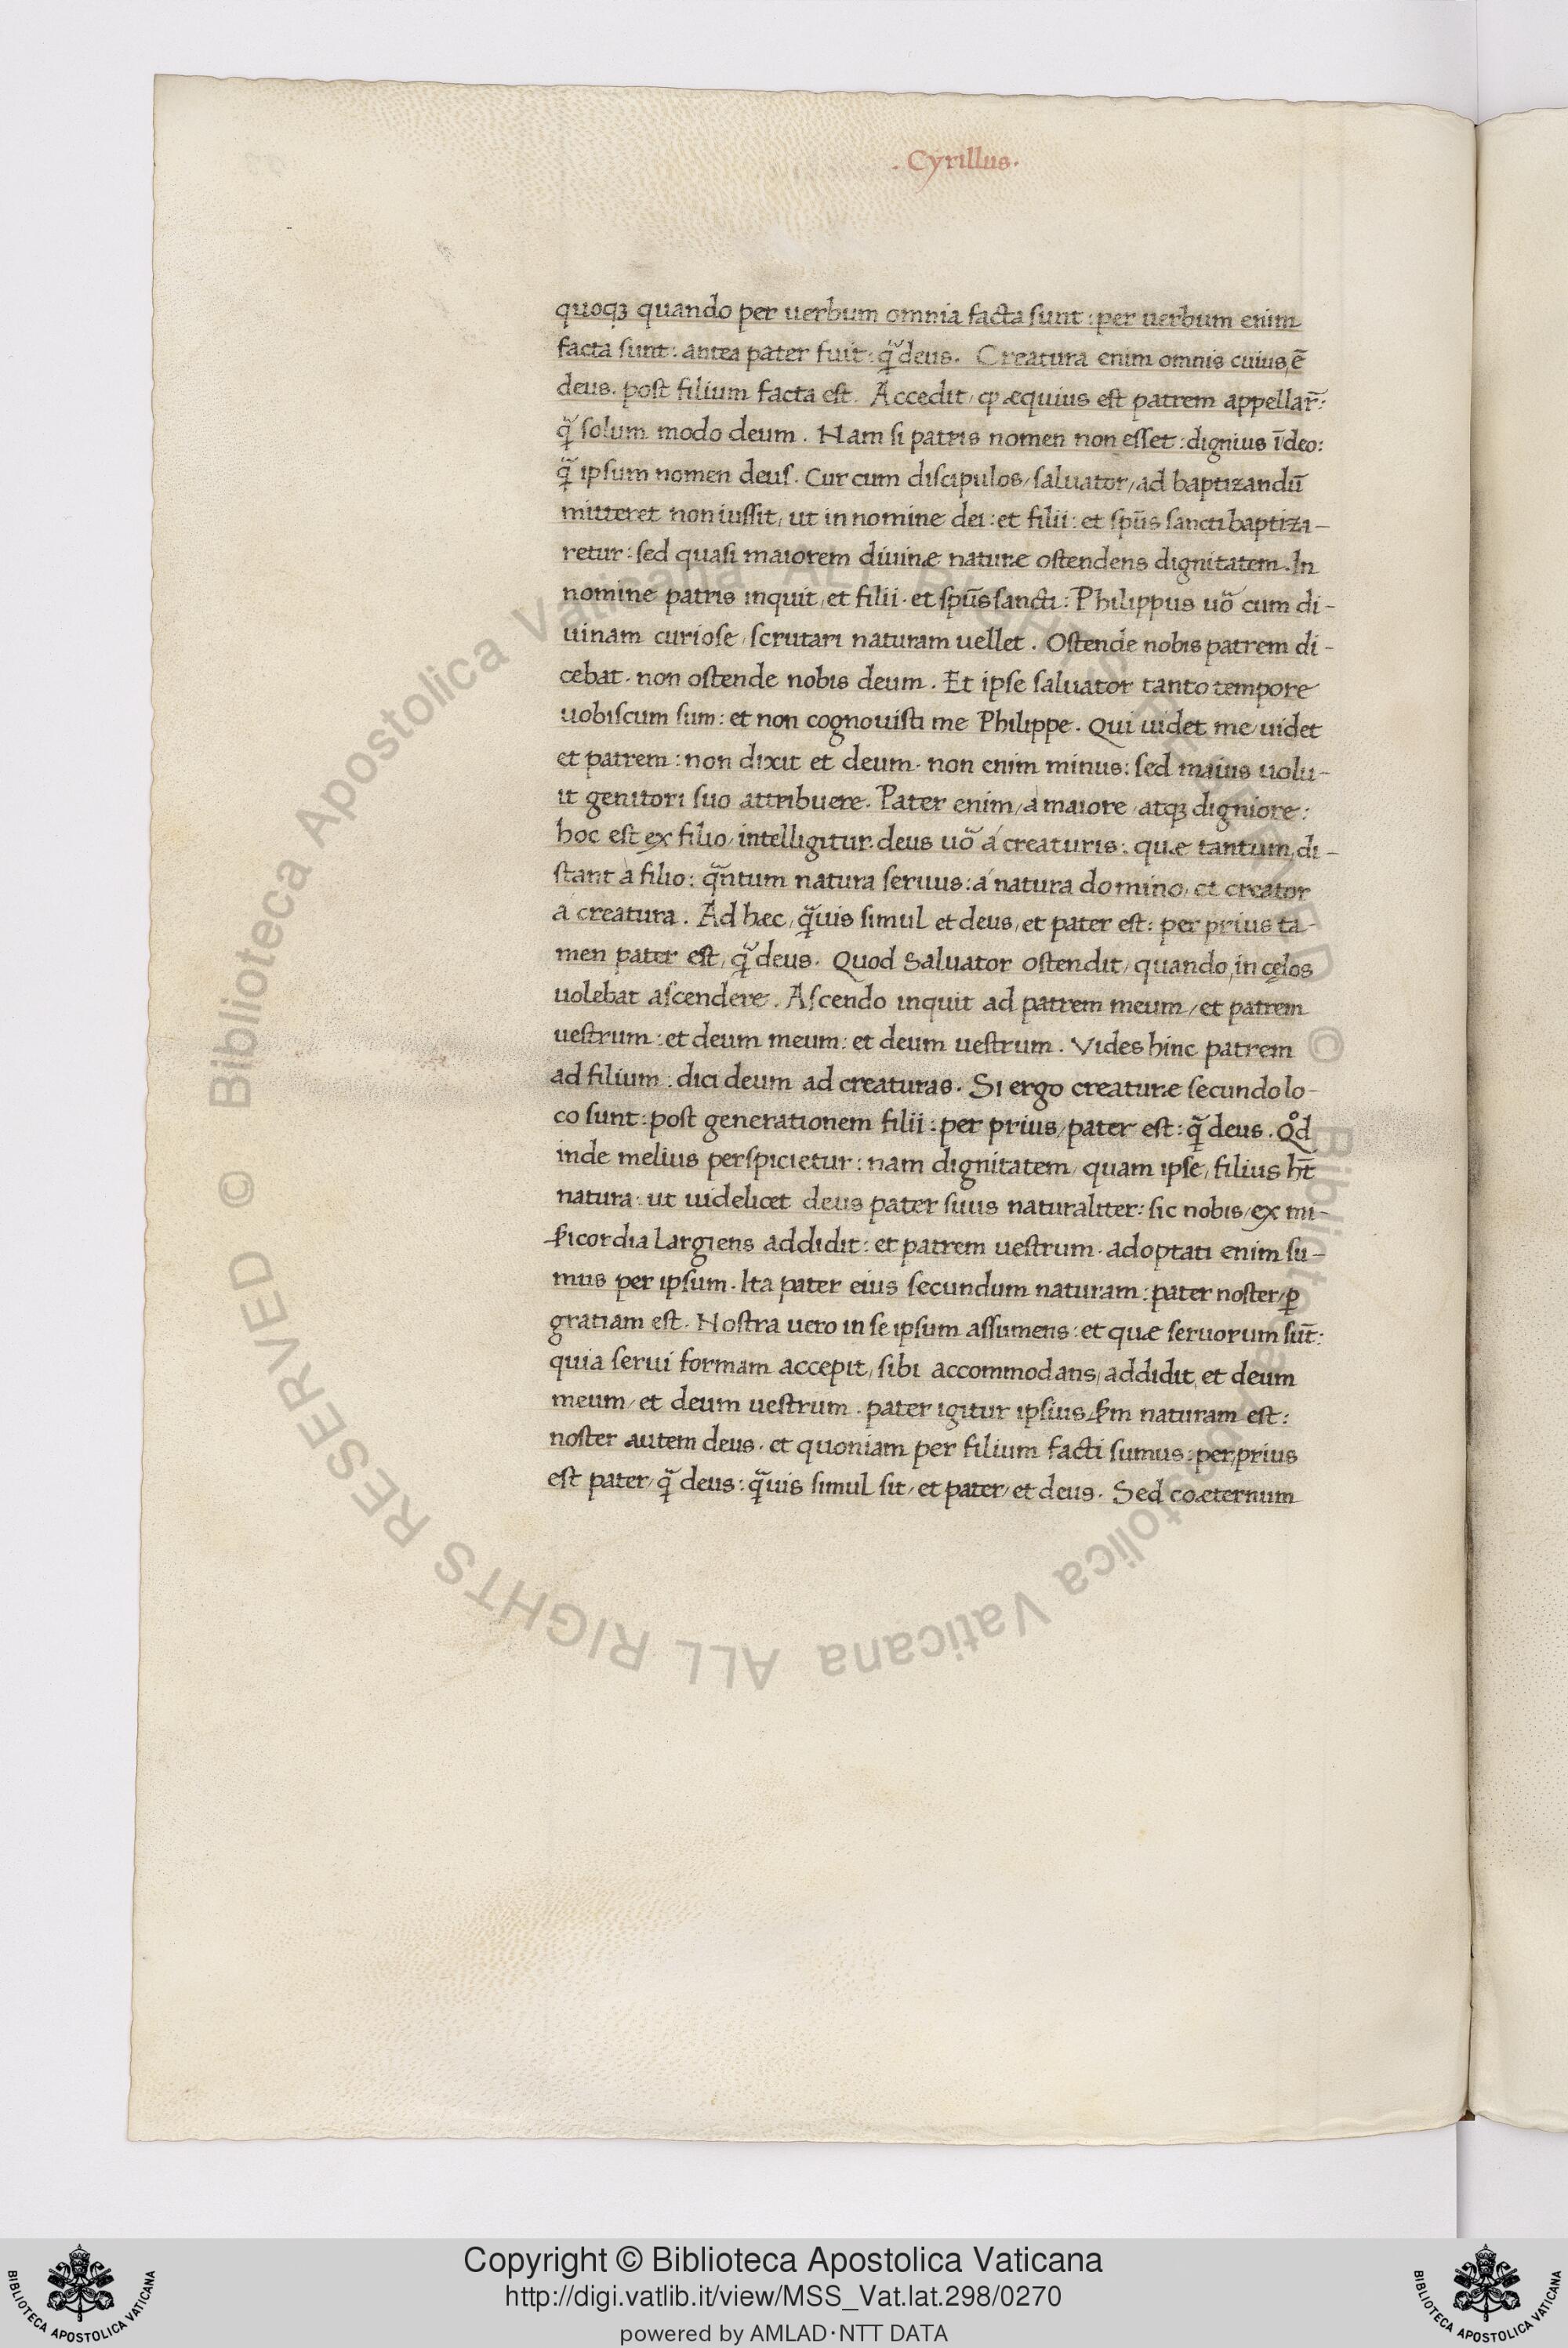 . Cyrillus.
quoqꝫ quando per uerbum omnia facta sunt : per uerbum enim
facta sunt : antea pater fuit : q̃ deus. Creatura enim omnis cuius ē
deus. post filium facta est. Accedit, ꝙ æquius est patrem appellar̄ :
q̃ solum modo deum. Nam si patris nomen non esset : dignius īdeo :
q̃ ipsum nomen deus. Cur cum discipulos, saluator, ad baptizandū
mitteret non iussit, ut in nomine dei : et filii : et spūs sancti baptiza-
retur : sed quasi maiorem diuinæ naturæ ostendens dignitatem. In
nomine patris inquit, et filii. et spūs sancti : Philippus uō cum di-
uinam curiose, scrutari naturam uellet. Ostende nobis patrem di-
cebat. non ostende nobis deum. Et ipse saluator tanto tempore
uobiscum sum : et non cognouisti me Philippe. Qui uidet me, uidet
et patrem : non dixit et deum. non enim minus : sed maius uolu-
it genitori suo attribuere. Pater enim, a maiore, atqꝫ digniore :
hoc est ex filio, intelligitur. deus uō á creaturis : quæ tantum, di-
stant à filio : q̃ntum natura seruus : á natura domino, et creator
a creatura. Ad hæc, q̃uis simul et deus, et pater est : per prius ta-
men pater est, q̃ deus. Quod Saluator ostendit, quando, in cęlos
uolebat ascendere. Ascendo inquit ad patrem meum, et patrem
uestrum : et deum meum : et deum uestrum. Vides hinc patrem
ad filium : dici deum ad creaturas. Si ergo creaturæ secundo lo-
co sunt : post generationem filii : per prius, pater est : q̃ deus. Qͦd
inde melius perspicietur : nam dignitatem, quam ipse, filius ht̄
natura : ut uidelicet deus pater suus naturaliter : sic nobis, ex mi-
ẜicordia largiens addidit : et patrem uestrum. adoptati enim su-
mus per ipsum. Ita pater eius secundum naturam : pater noster, ꝑ
gratiam est. Nostra uero in se ipsum assumens : et quæ seruorum sūt :
quia serui formam accepit, sibi accommodans, addidit, et deum
meum, et deum uestrum. pater igitur ipsius, ẜm naturam est :
noster autem deus. et quoniam per filium facti sumus : per, prius
est pater, q̃ deus : q̃uis simul sit, et pater, et deus. Sed coæternum
© Biblioteca Apostolica Vaticana ALL RIGHTS RESERVED © Biblioteca Apostolica Vaticana ALL RIGHTS RESERVED
BIBLIOTECA APOSTOLICA VATICANA
Copyright © Biblioteca Apostolica Vaticana
http://digi.vatlib.it/view/MSS_Vat.lat.298/0270
powered by AMLAD·NTT DATA
BIBLIOTECA APOSTOLICA VATICANA